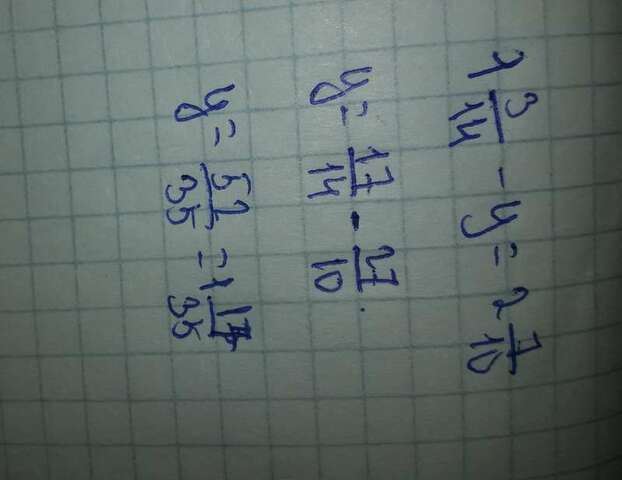 1 3/14 - y = 2 7/10
y = 17/14 - 27/10
y = 52/35 = 1 17/35